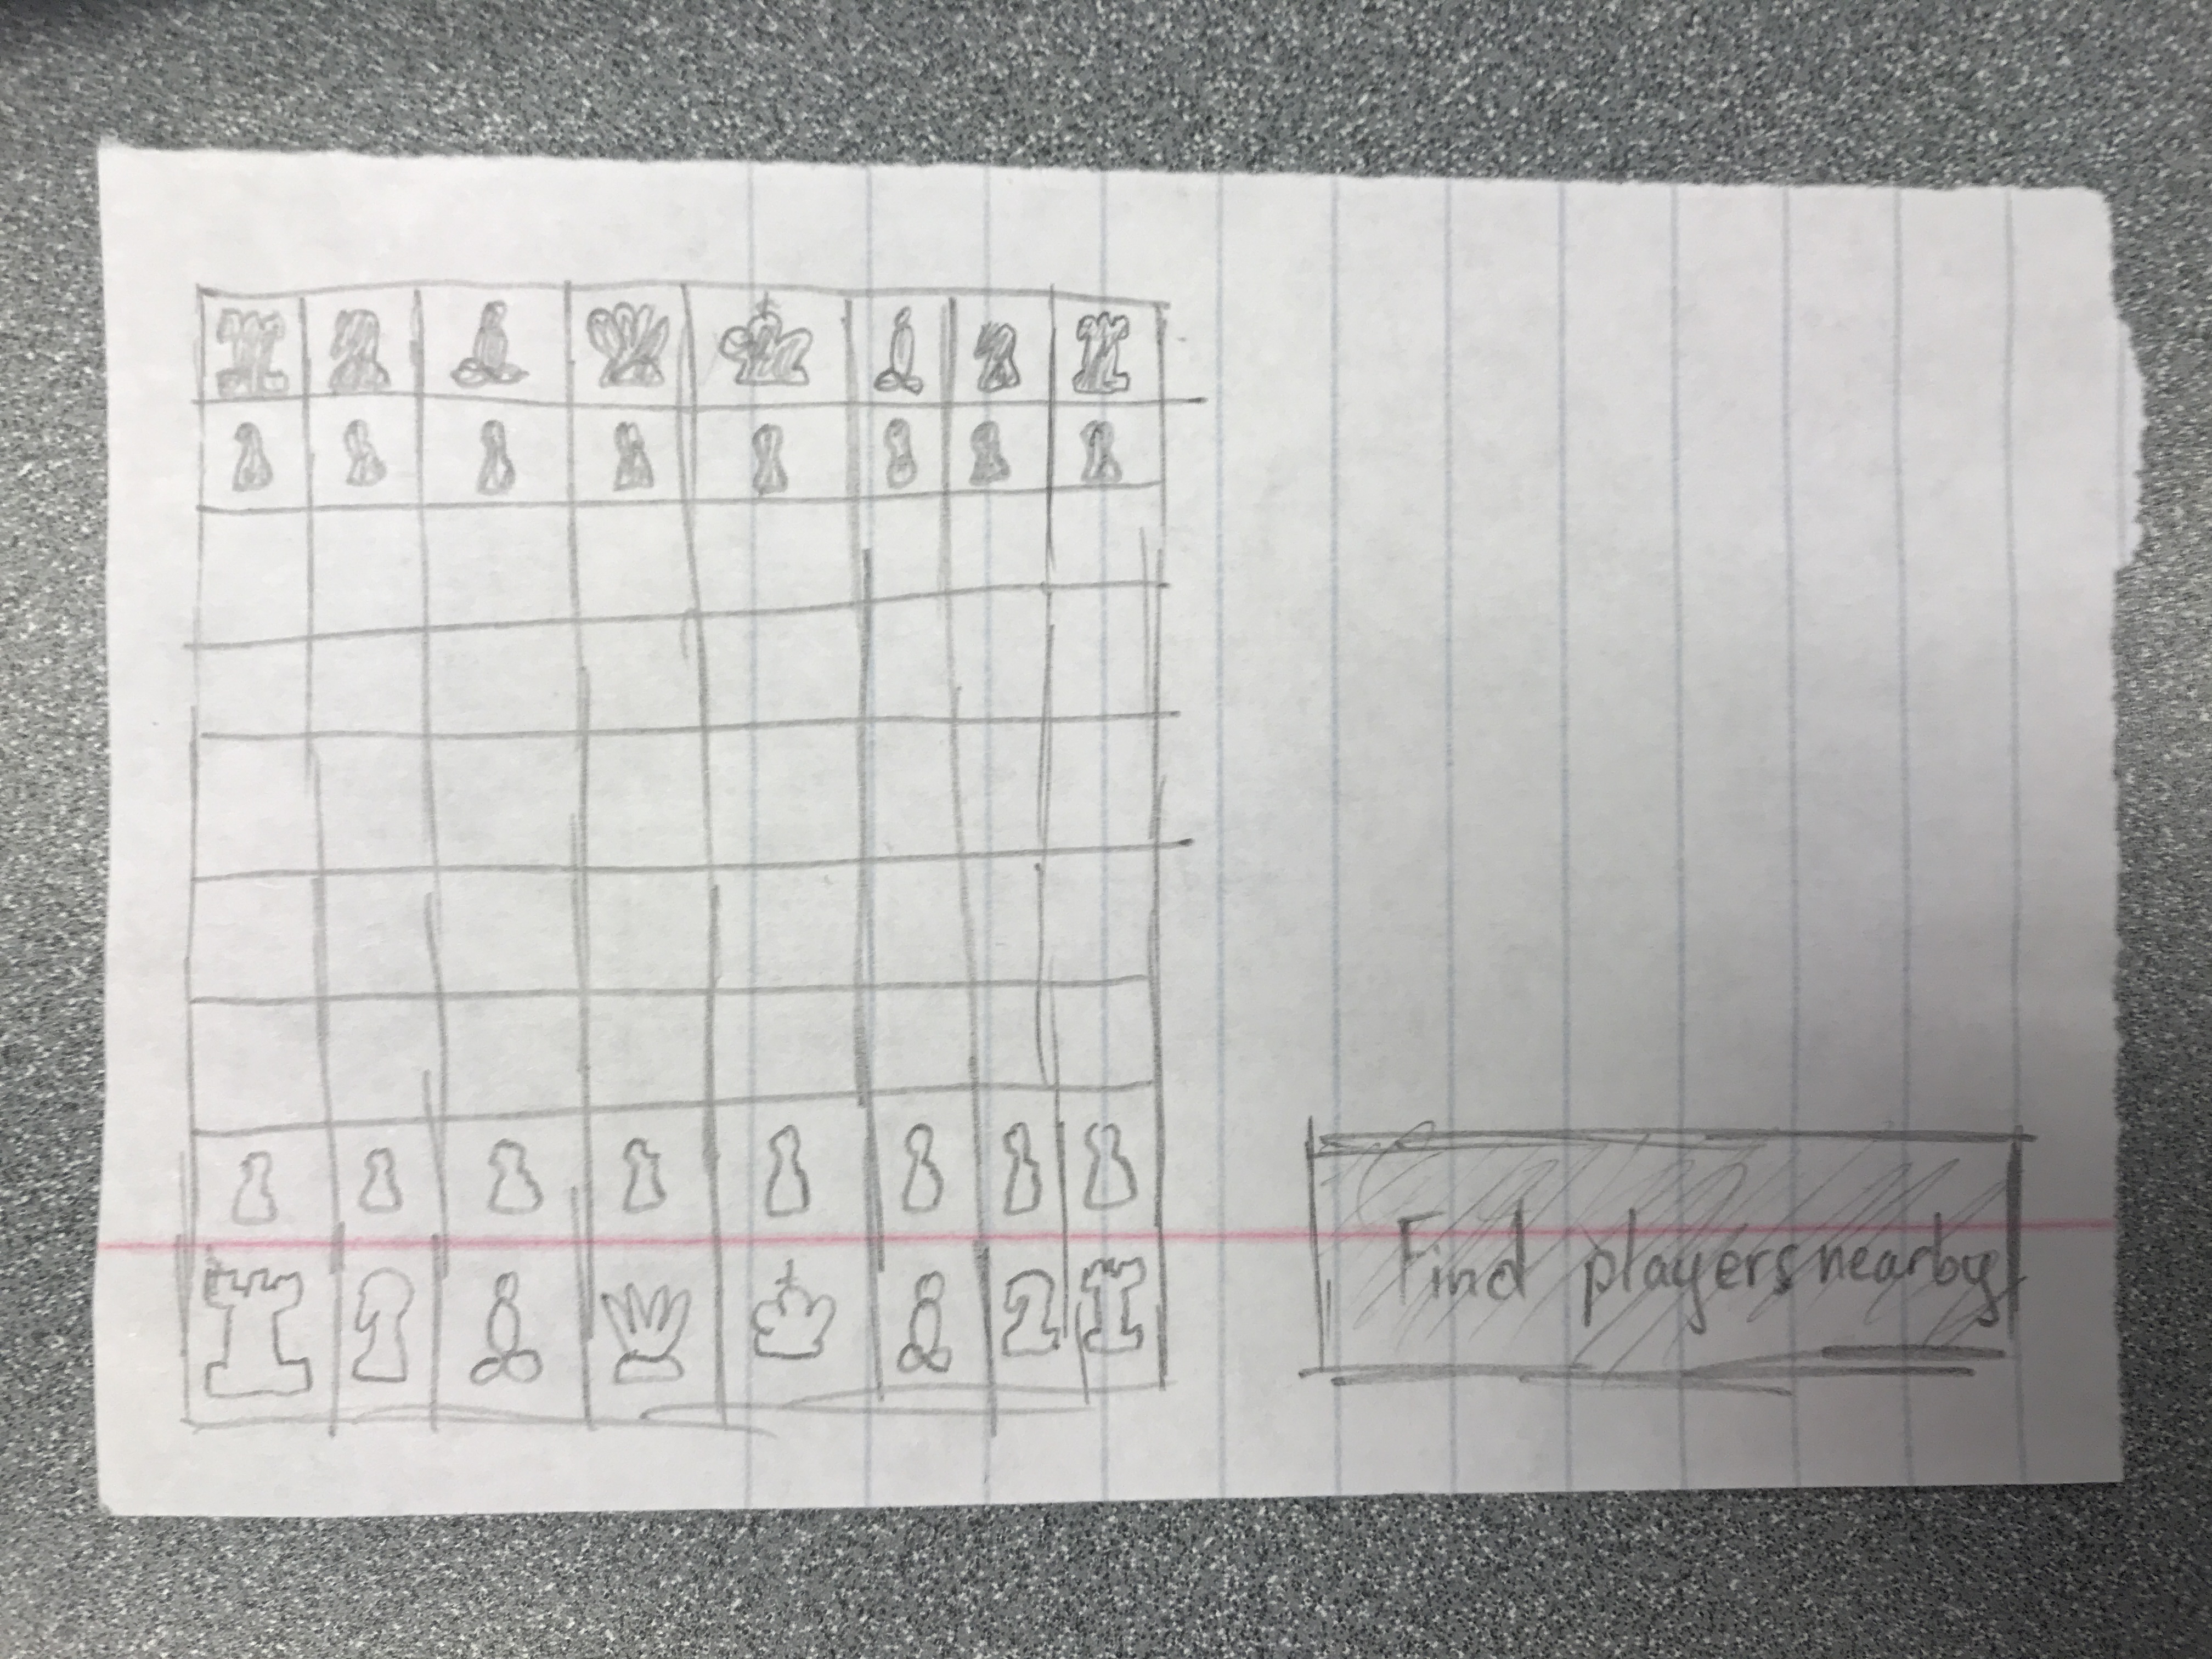 Find players nearby